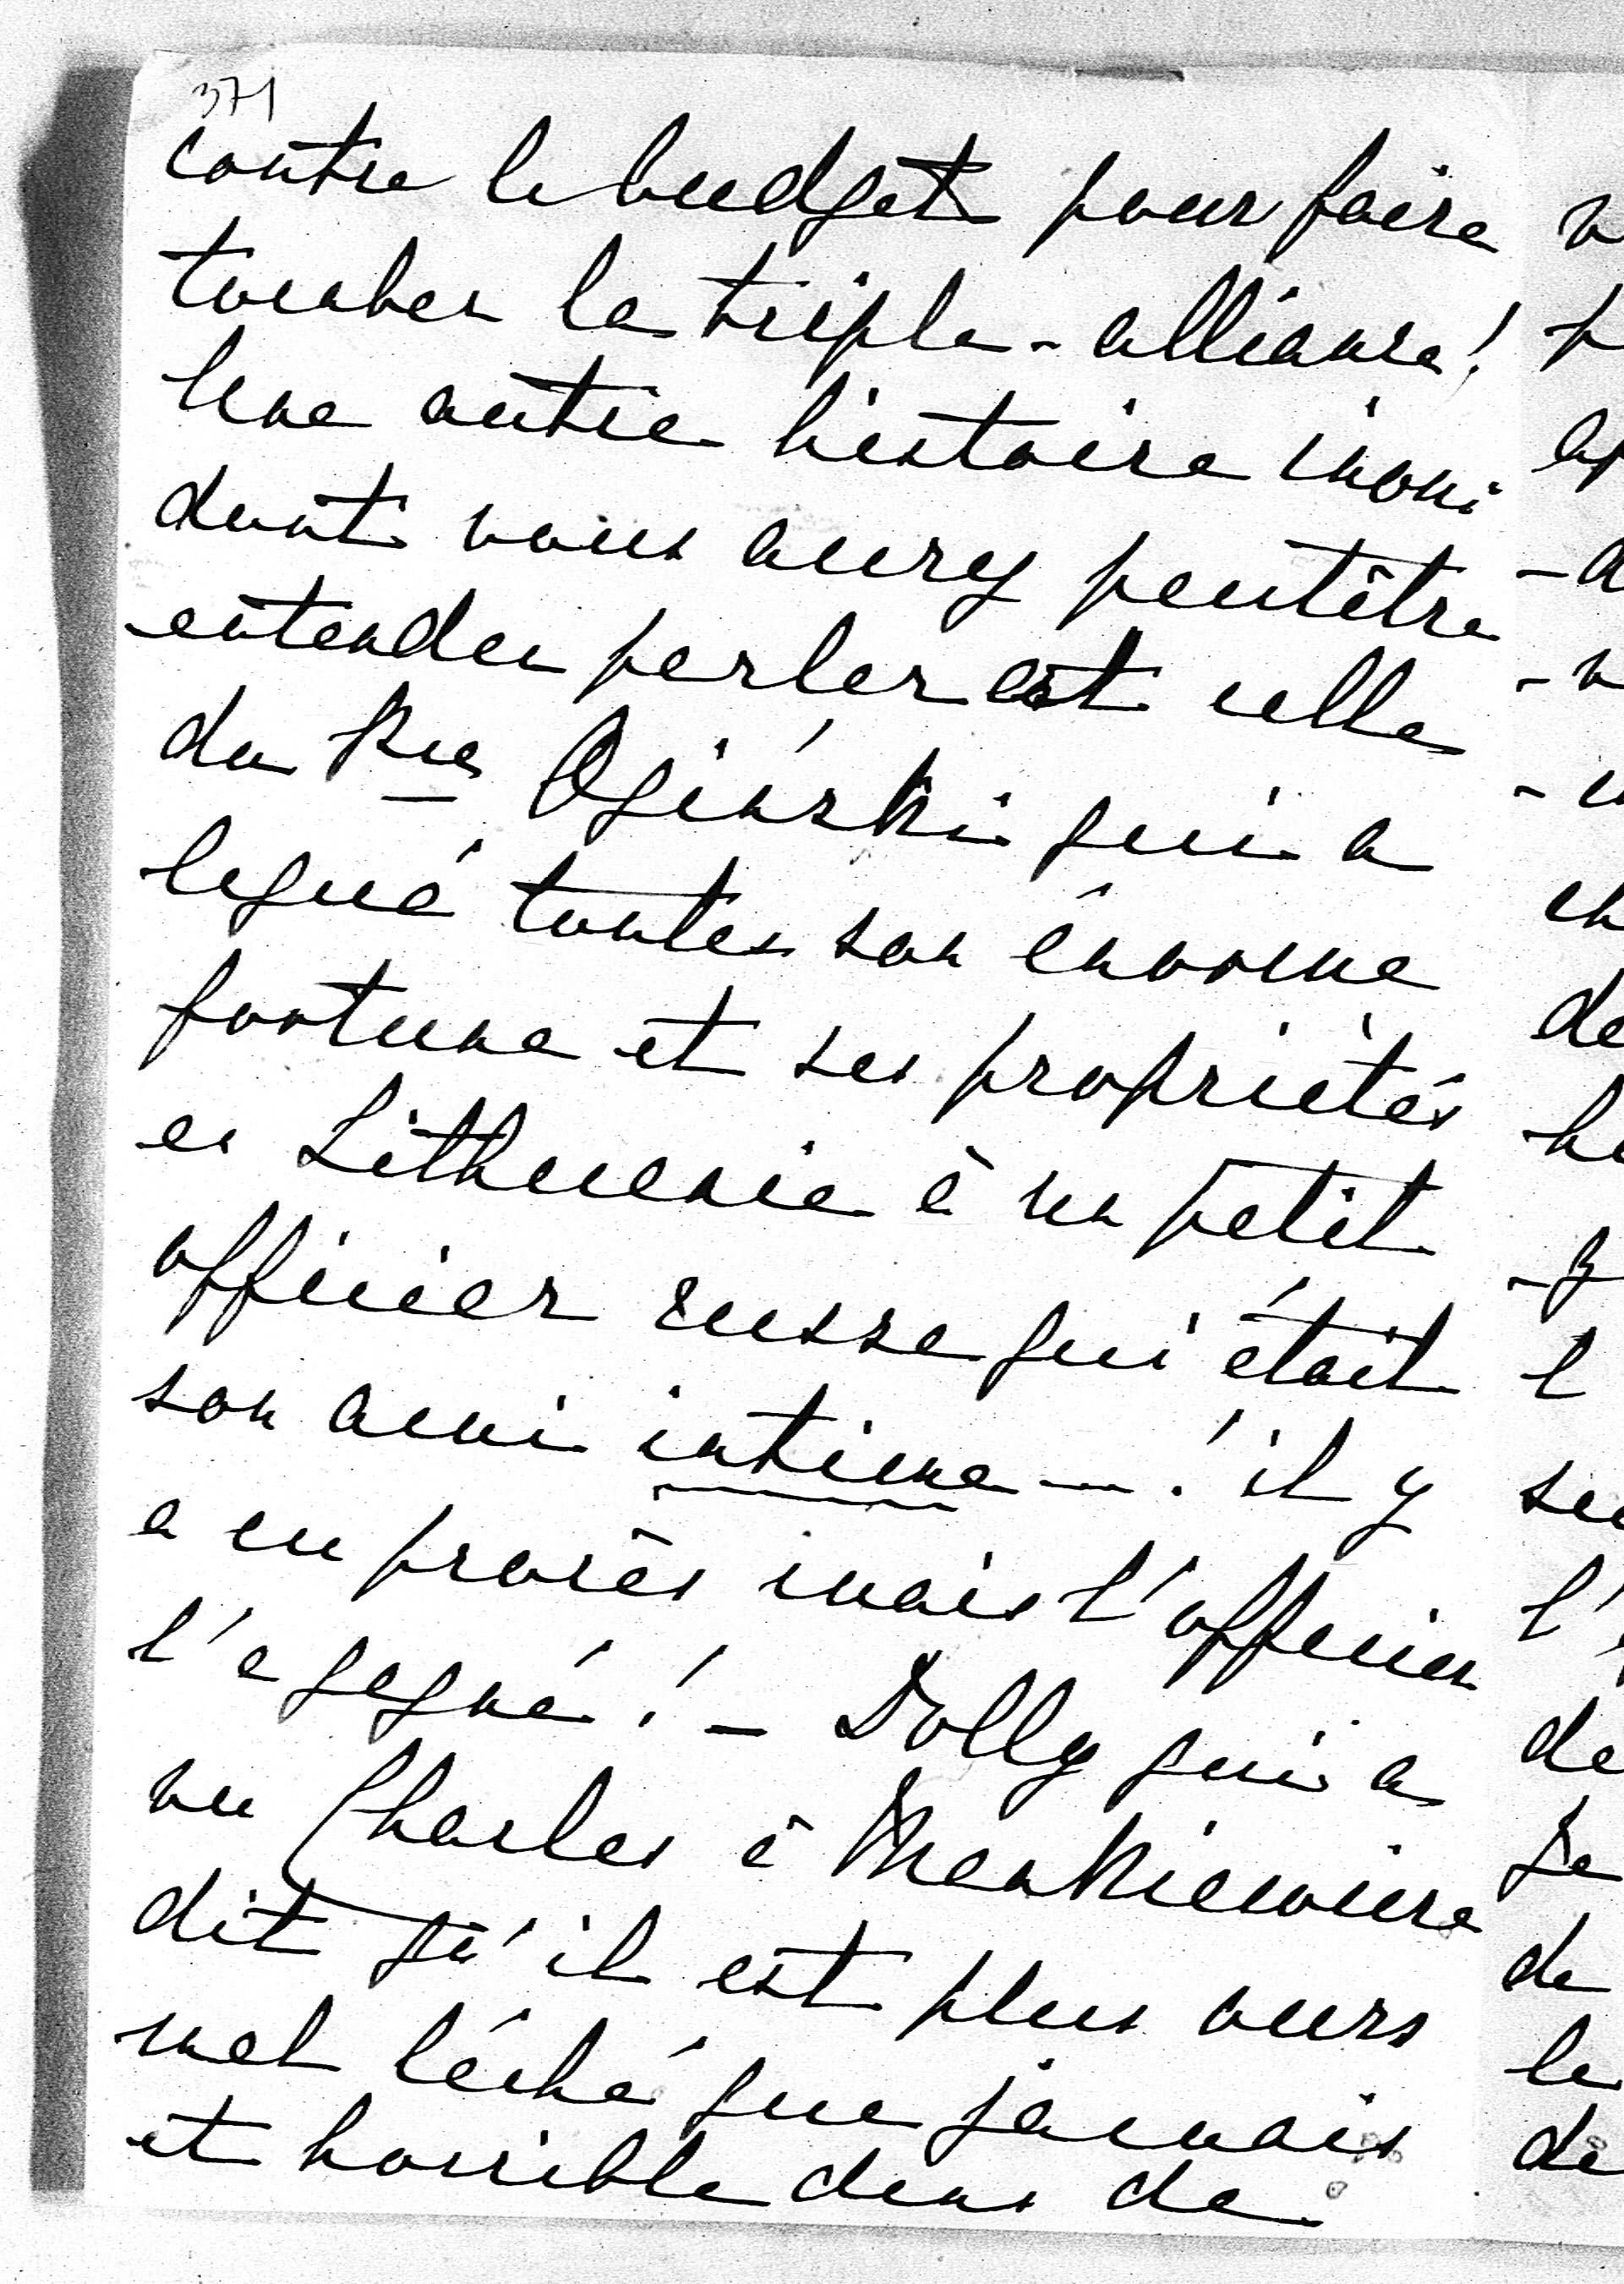 371
contre le budget pour faire
tomber la triple-alliance!
Une autre histoire inoui
dont vous aurez peutêtre
entendu parler est celle
du Pce Ogiński qui a
legué toutes son énorme
fortune et ses propriétés
en Lithuanie à un petit
officier russe qui était
son ami intime —! il y
a eu procès mais l'officier
l'a gagné! — Dolly qui a
vu Charles à Mankiewicze
dit qu'il est plus ours
mal léché que jamais
et horrible dans de